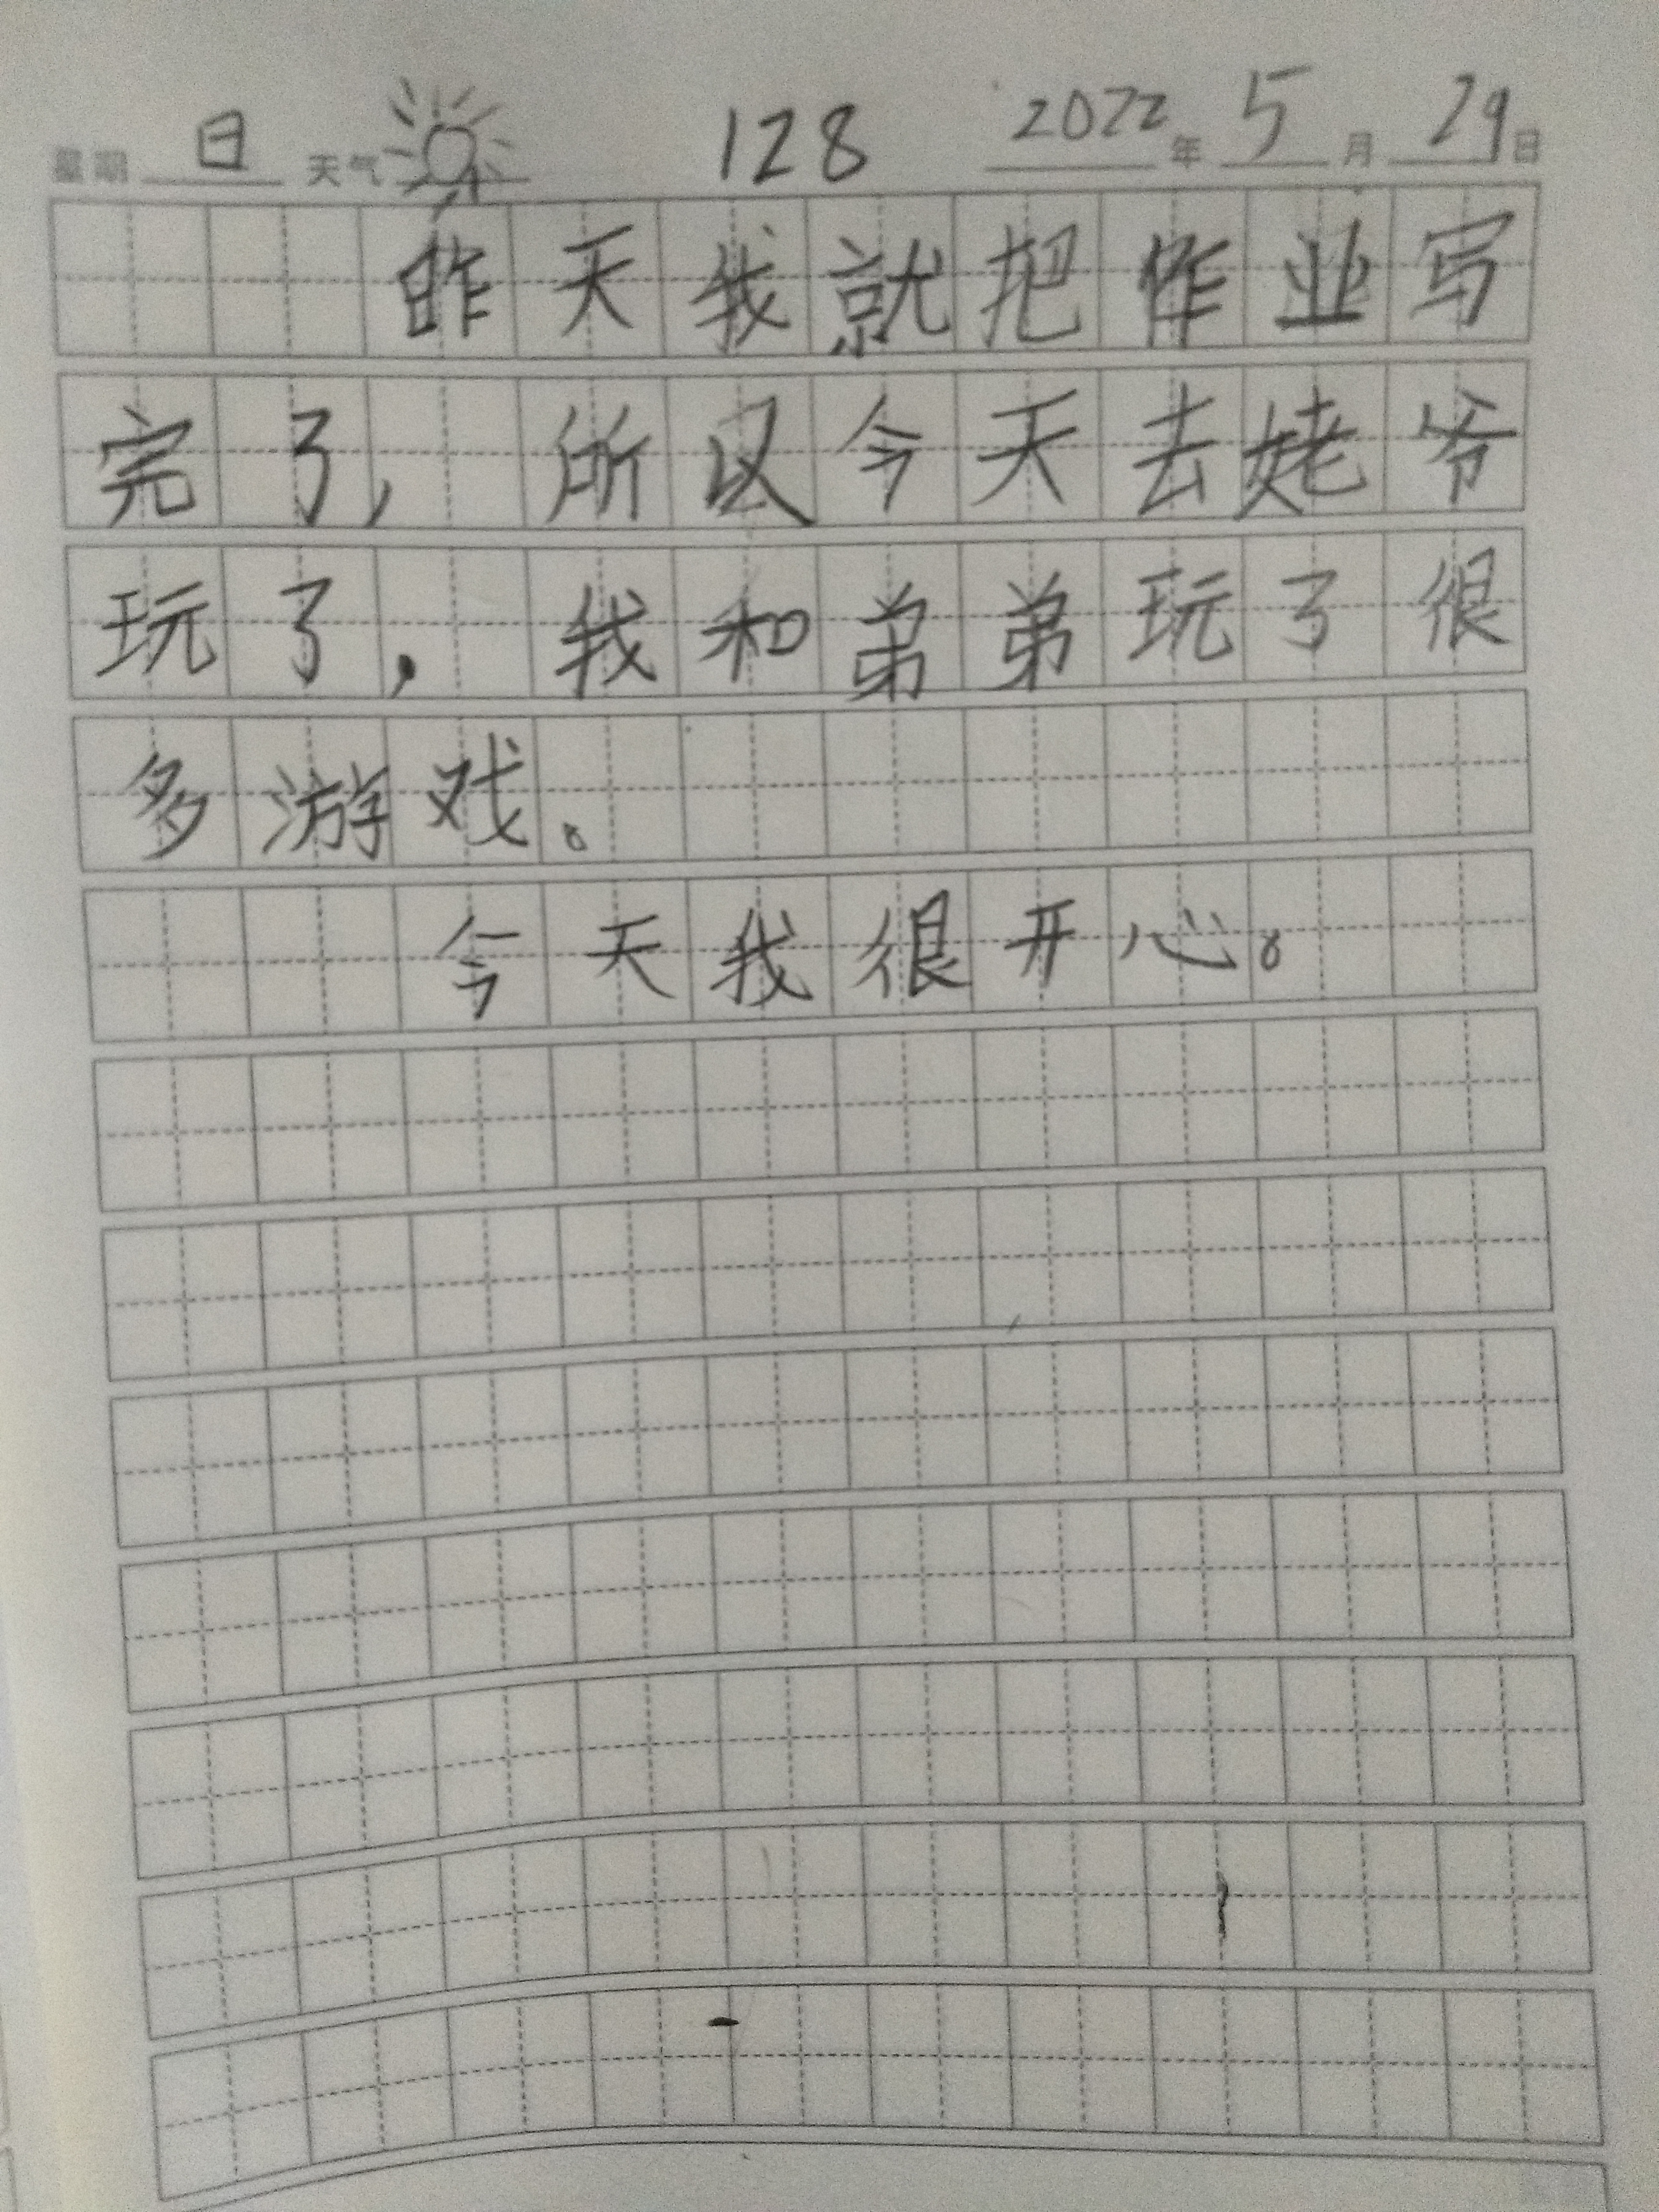 星期 日 天气 128 2022 年 5 月 29 日
昨天我就把作业写
完了，所以今天去姥爷
玩了，我和弟弟玩了很
多游戏。
今天我很开心。